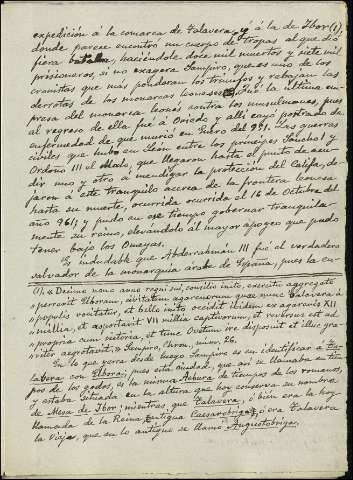 expedición á la comarca de Talavera, y á la de Ibor (1),
donde parece encontró un cuerpo de tropas al que dio
fiera batalla, haciéndole doce mil muertos y siete mil
prisioneros, si no exagera Sampiro, que es uno de los
cronistas que más ponderan los triunfos y rebajan las
derrotas de los monarcas leoneses. Fué la última em-
presa del monarca leonés contra los musulmanes, pues
al regreso de ella fué á Oviedo y allí cayó postrado de
enfermedad de que murió en Enero del 951. Las guerras
civiles que hubo en León entre los príncipes Sancho I y
Ordoño III el Malo, que llegaron hasta el punto de acu-
dir uno y otro á mendigar la protección del Califa, de-
jaron á este tranquilo acerca de la frontera leonesa
hasta su muerte, ocurrida ocurrida el 16 de Octubre del
año 961, y pudo en ese tiempo gobernar tranquila-
mente su reino, elevándolo al mayor apogeo que pudo
tener bajo los Omeyas.
Es indudable que Abderrahman III fué el verdadero
salvador de la monarquía árabe de España, pues la en-
(1). "Decimo nono anno regni sui, consilio inito, exercitu aggregato
perrexit Elboram, civitatem agarenorum quae nunc Talavera à
populis vocitatur, et bello inito occidit ibidem ex agarenis XII
millia, et asportavit VII millia captivorum, et reversus est ad
propria cum victoria, et tunc Ovetum ire disposuit et illuc gra-
viter aegrotavit." Sampiro, Chron., núm. 26.
En lo que yerra desde luego Sampiro es en identificar á Ta-
labera con Elbora; pues esta ciudad, que así se llamaba en tiem-
pos de los godos, es la misma Aebura de tiempos de los romanos,
y estaba situada en la altura que hoy conserva su nombre
de Mesa de Ibor; mientras que Talavera, ó bien era la hoy
llamada de la Reina, antigua Caesarobriga, ó era Talavera
la Vieja, que en lo antiguo se llamó Augustobriga.